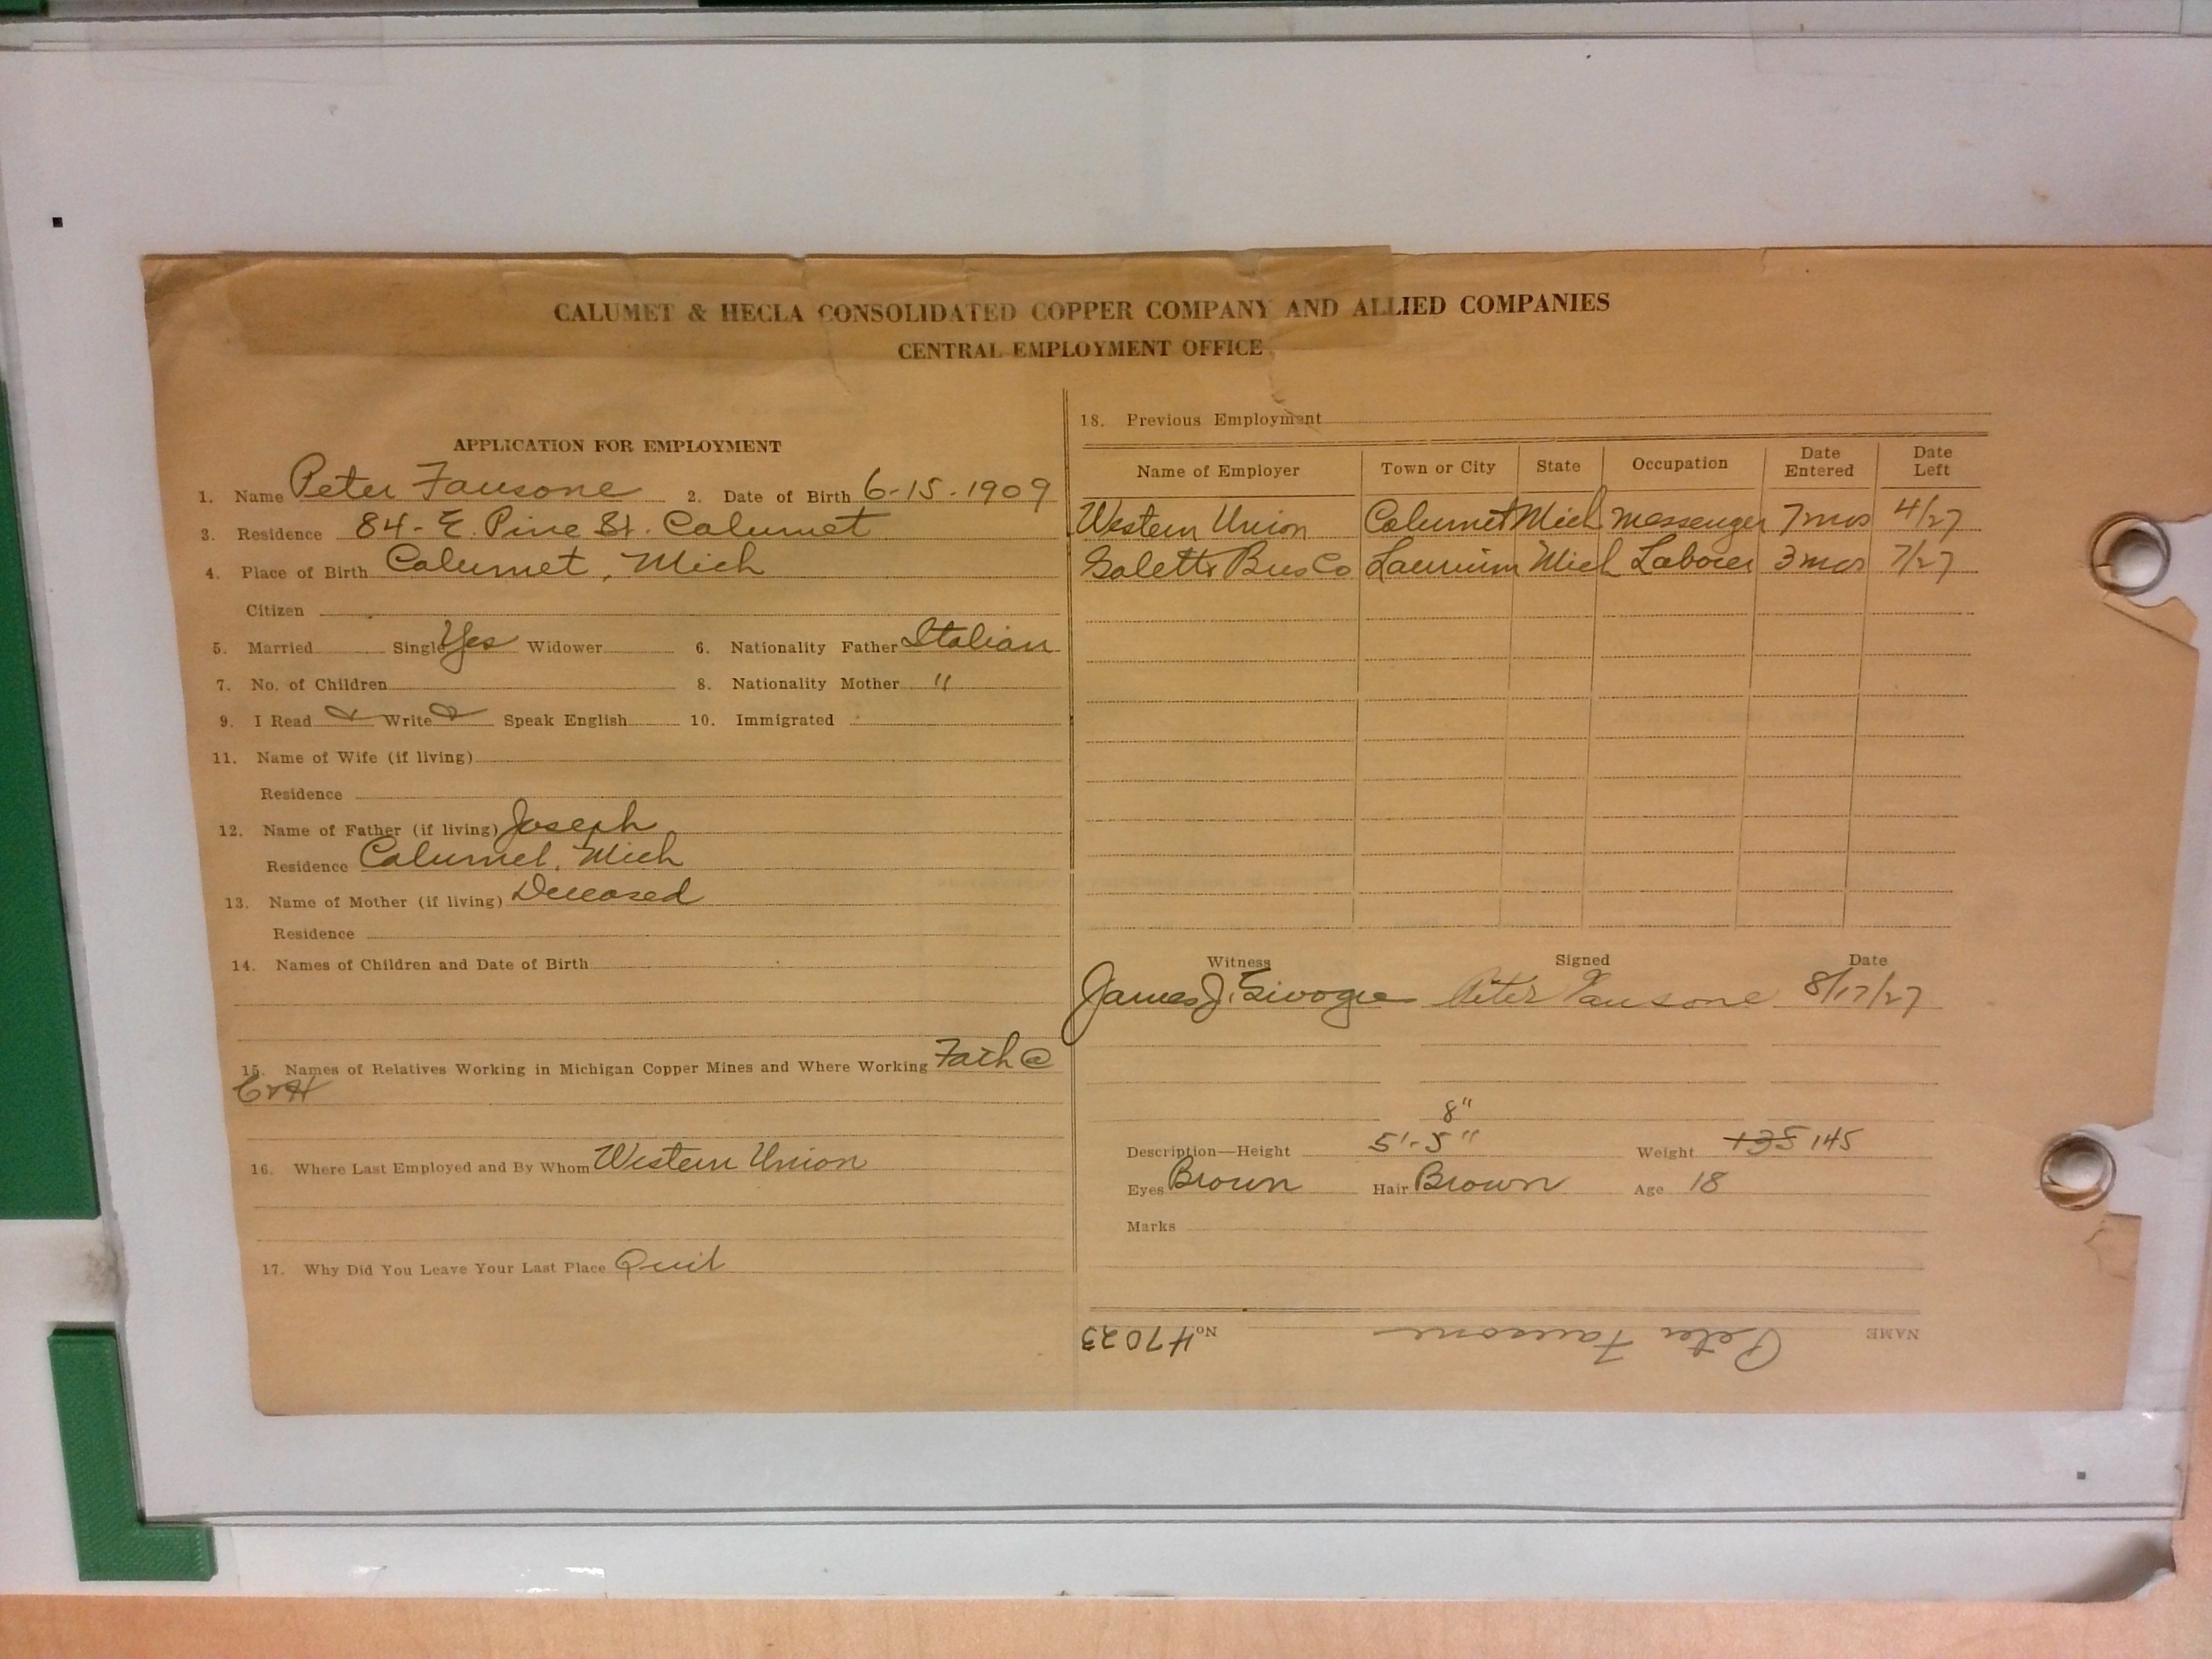 CALUMET & HECLA CONSOLIDATED COPPER COMPANY AND ALLIED COMPANIES
CENTRAL EMPLOYMENT OFFICE
APPLICATION FOR EMPLOYMENT
1. Name Peter Fausone 2. Date of Birth 6-15-1909
3. Residence 84-E. Pine St. Calumet
4. Place of Birth Calumet, Mich
Citizen
5. Married Single Yes Widower 6. Nationality Father Italian
7. No. of Children 8. Nationality Mother "
9. I Read & Write Speak English 10. Immigrated
11. Name of Wife (if living)
Residence
12. Name of Father (if living) Joseph
Residence Calumet, Mich
13. Name of Mother (if living) Deceased
Residence
14. Names of Children and Date of Birth
15. Names of Relatives Working in Michigan Copper Mines and Where Working Fath @
C&H
16. Where Last Employed and By Whom Western Union
17. Why Did You Leave Your Last Place Quit
18. Previous Employment
Name of Employer Town or City State Occupation Date Entered Date Left
Western Union Calumet Mich messenger 7 mos 4/27
Bus Co Laurium Mich Laborer 3 mos 7/27
Witness Signed Date
James J. Peter Fausone 8/17/27
8"
Description—Height 5'-5" Weight 135 145
Eyes Brown Hair Brown Age 18
Marks
NAME Peter Fausone No 47023